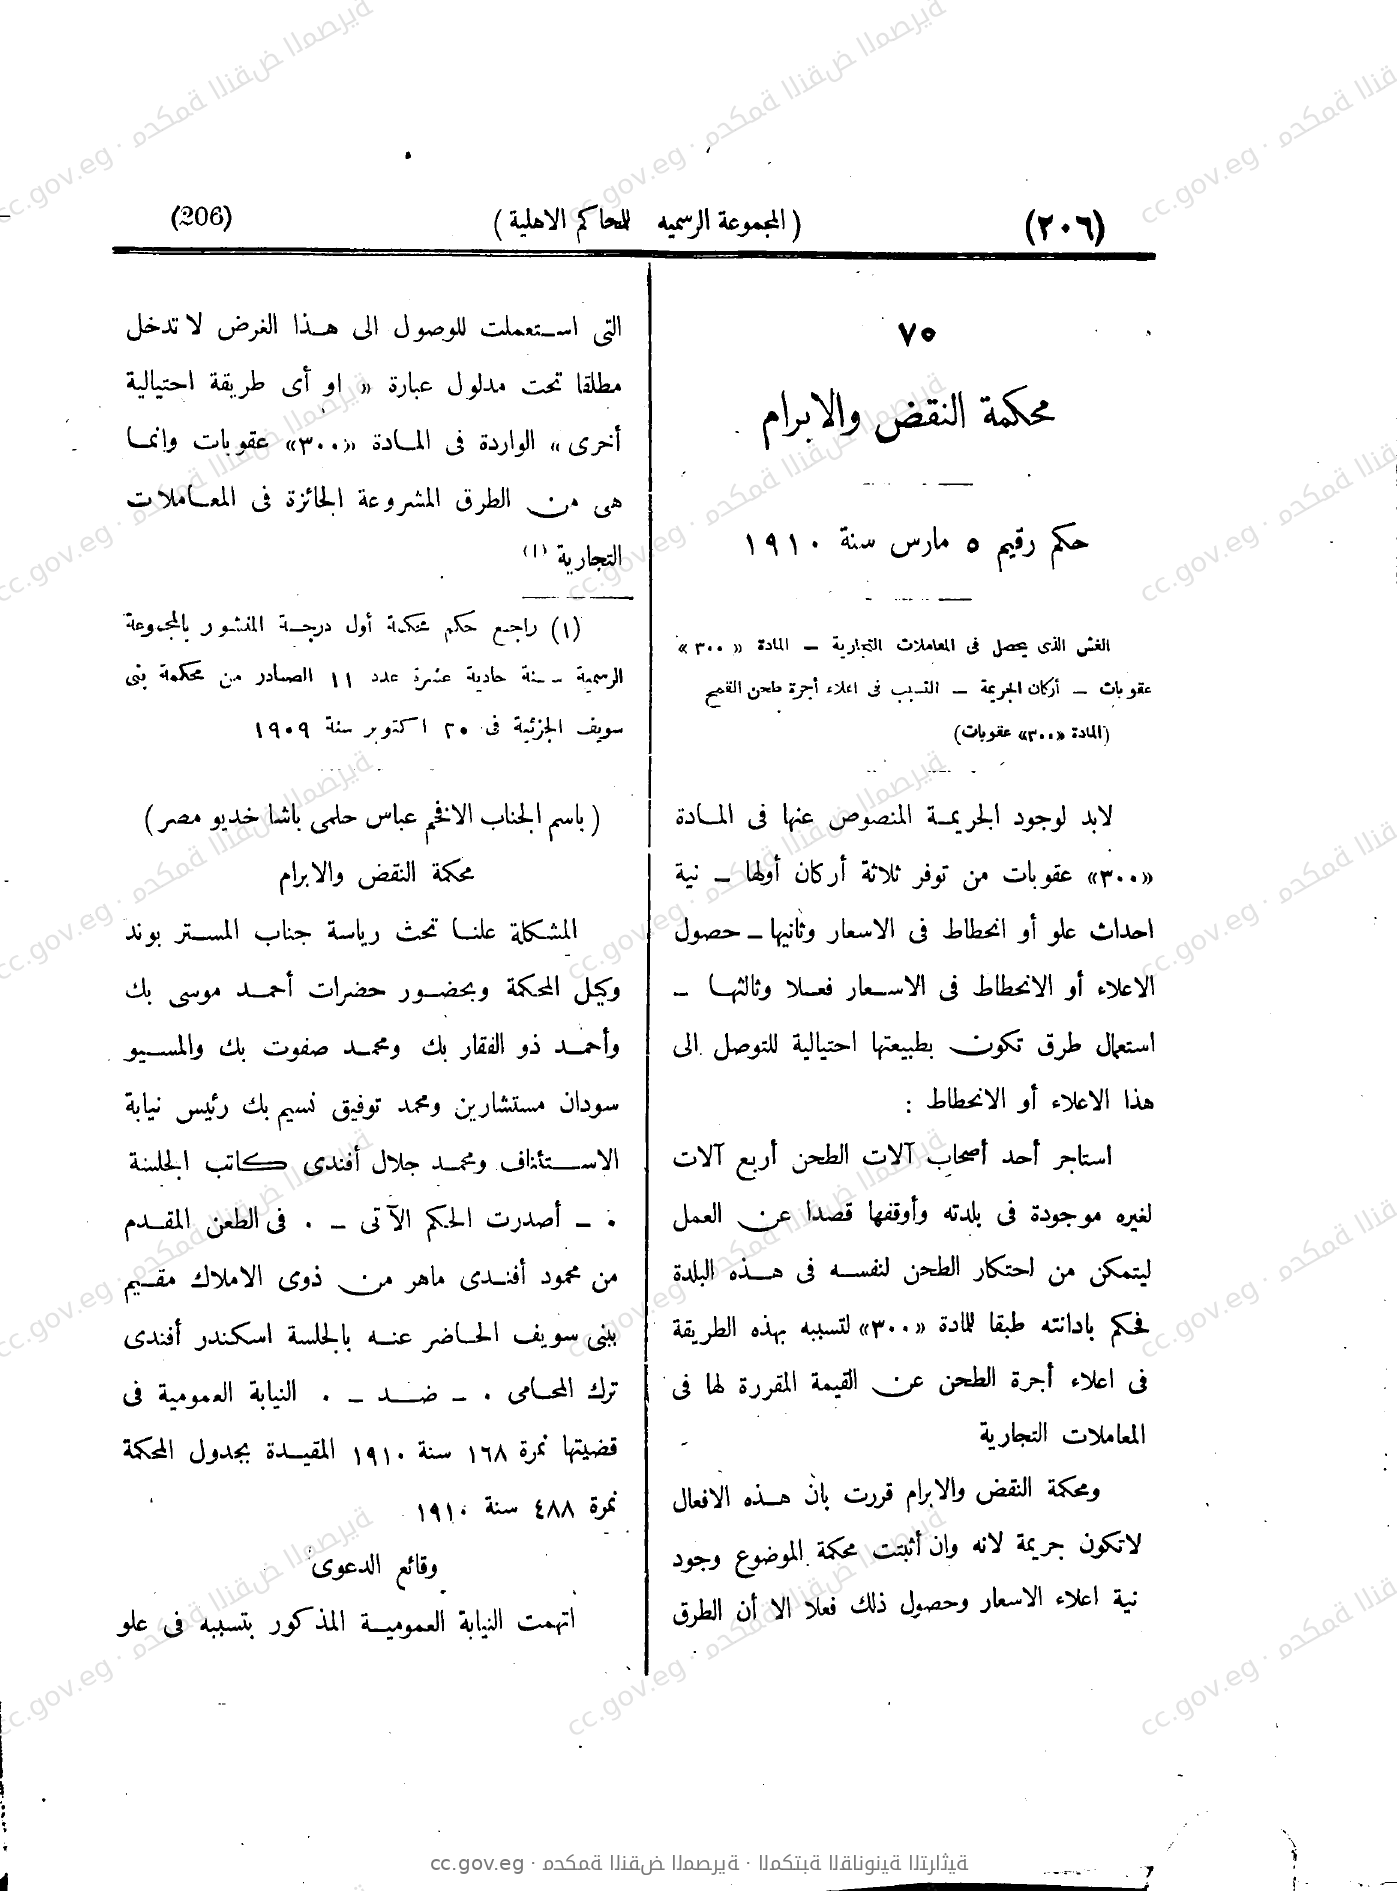 (٢٠٦)
( المجموعة الرسميه للمحاكم الاهلية )
(206)
٧٥
محكمة النقض والابرام
حكم رقيم ٥ مارس سنة ١٩١٠
الغش الذى يحصل فى المعاملات التجارية – المادة « ٣٠٠ »
عقوبات – أركان الجريمة – التسبب فى اعلاء أجرة طحن القمح
(المادة «٣٠٠» عقوبات)
لابد لوجود الجريمة المنصوص عنها فى المادة
«٣٠٠» عقوبات من توفر ثلاثة أركان أولها – نية
احداث علو أو انحطاط فى الاسعار وثانيها – حصول
الاعلاء أو الانحطاط فى الاسعار فعلا وثالثها –
استعمال طرق تكون بطبيعتها احتيالية للتوصل الى
هذا الاعلاء أو الانحطاط :
استاجر أحد أصحاب آلات الطحن أربع آلات
لغيره موجودة فى بلدته وأوقفها قصدا عن العمل
ليتمكن من احتكار الطحن لنفسه فى هذه البلدة
فحكم بادانته طبقا للمادة «٣٠٠» لتسببه بهذه الطريقة
فى اعلاء أجرة الطحن عن القيمة المقررة لها فى
المعاملات التجارية
ومحكمة النقض والابرام قررت بان هذه الافعال
لاتكون جريمة لانه وان أثبتت محكمة الموضوع وجود
نية اعلاء الاسعار وحصول ذلك فعلا الا أن الطرق
التى استعملت للوصول الى هذا الغرض لا تدخل
مطلقا تحت مدلول عبارة « او أى طريقة احتيالية
أخرى » الواردة فى المادة «٣٠٠» عقوبات وانما
هى من الطرق المشروعة الجائزة فى المعاملات
التجارية (١)
(١) راجع حكم محكمة أول درجة المنشور بالمجموعة
الرسمية سنة حادية عشرة عدد ١١ الصادر من محكمة بنى
سويف الجزئية فى ٢٠ اكتوبر سنة ١٩٠٩
( باسم الجناب الافخم عباس حلمى باشا خديو مصر )
محكمة النقض والابرام
المشكلة علنا تحت رياسة جناب المستر بوند
وكيل المحكمة وبحضور حضرات أحمد موسى بك
وأحمد ذو الفقار بك ومحمد صفوت بك والمسيو
سودان مستشارين ومحمد توفيق نسيم بك رئيس نيابة
الاستئناف ومحمد جلال أفندى كاتب الجلسة
٠ – أصدرت الحكم الآتى – ٠ فى الطعن المقدم
من محمود أفندى ماهر من ذوى الاملاك مقيم
ببنى سويف الحاضر عنه بالجلسة اسكندر أفندى
ترك المحامى ٠ – ضد – ٠ النيابة العمومية فى
قضيتها نمرة ١٦٨ سنة ١٩١٠ المقيدة بجدول المحكمة
نمرة ٤٨٨ سنة ١٩١٠
وقائع الدعوى
اتهمت النيابة العمومية المذكور بتسببه فى علو
cc.gov.eg · محكمة النقض المصرية · المكتبة القانونية التراثية